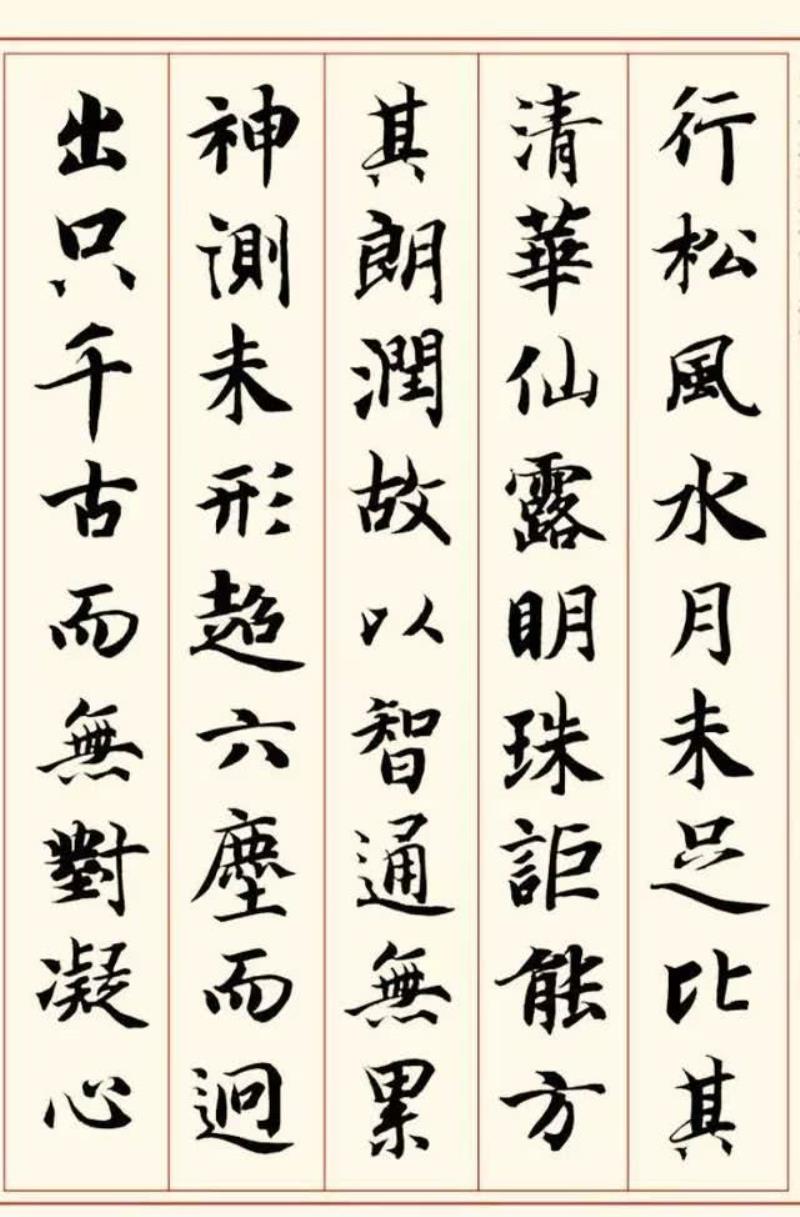 行松風水月未足比其
清華仙露明珠詎能方
其朗潤故以智通無累
神測未形超六塵而迥
出只千古而無對凝心